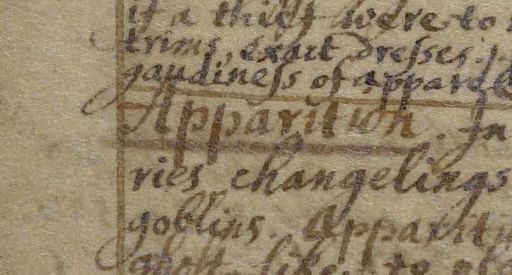 if a thief were to
trims, exact Dresses.
gaudiness of appare
Apparition. In
ries changelings
goblins. Apparit
ghost like to